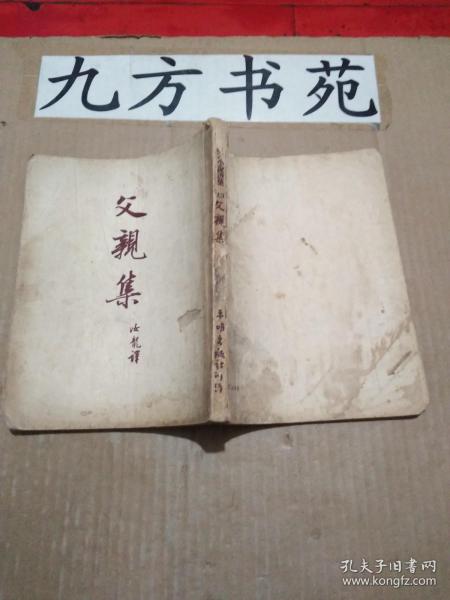 九方书苑
父親集
汝龍譯
父親集
平明出版社刊行
孔夫子旧书网
www.kongfz.com